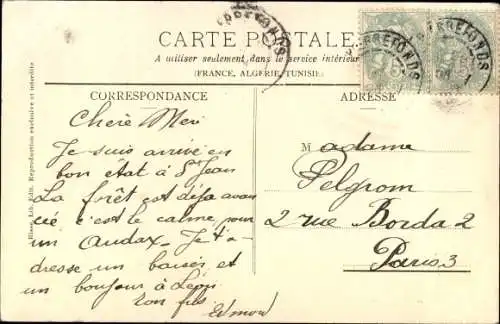 CARTE POSTALE
A utiliser seulement dans le service intérieur
(FRANCE, ALGERIE, TUNISIE)
PIERREFONDS
PIERREFONDS
CORRESPONDANCE
Chère Meri
Je suis arrivé en
bon état à St Jean
La forêt est déja avan
cié c'est le calme pour
un Audax_ Je t'a
dresse un baisés et
un bonjour à Léon
ton fils Edmond
ADRESSE
Madame
Pelgrom
2 rue Borda 2
Paris 3
Lib. Edit. Reproduction exclusive et interdite